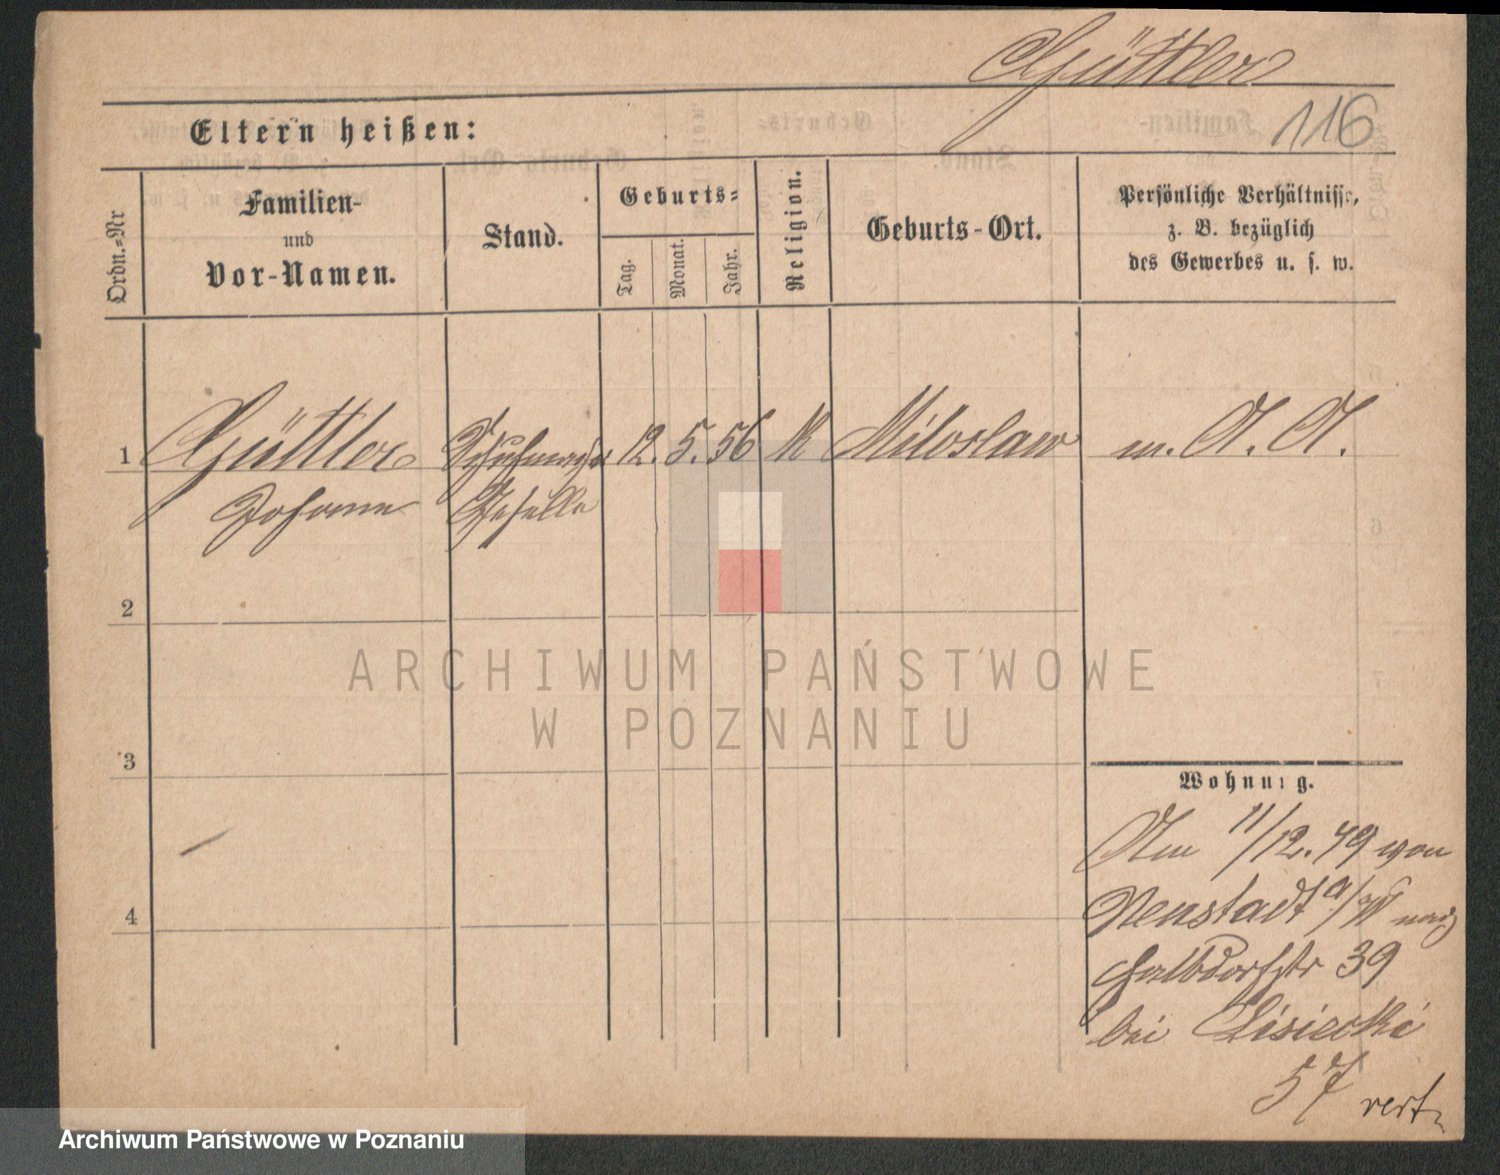 Güttler
116
Eltern heißen:
Ordn.=Nr
Familien-
und
Vor-Namen.
Stand.
Geburts=
Tag.
Monat.
Jahr.
Religion.
Geburts-Ort.
Persönliche Verhältnisse,
z. B. bezüglich
des Gewerbes u. s. w.
1 Güttler Schuhmacher 12. 5. 56 K Miloslaw m. A. A.
Johann Geselle
2
3
4
Wohnung.
Am 11/12. 79 von
Neustadt a/W nach
Halbdorfstr 39
bei Lisiecki
57 vert
ARCHIWUM PAŃSTWOWE
W POZNANIU
Archiwum Państwowe w Poznaniu